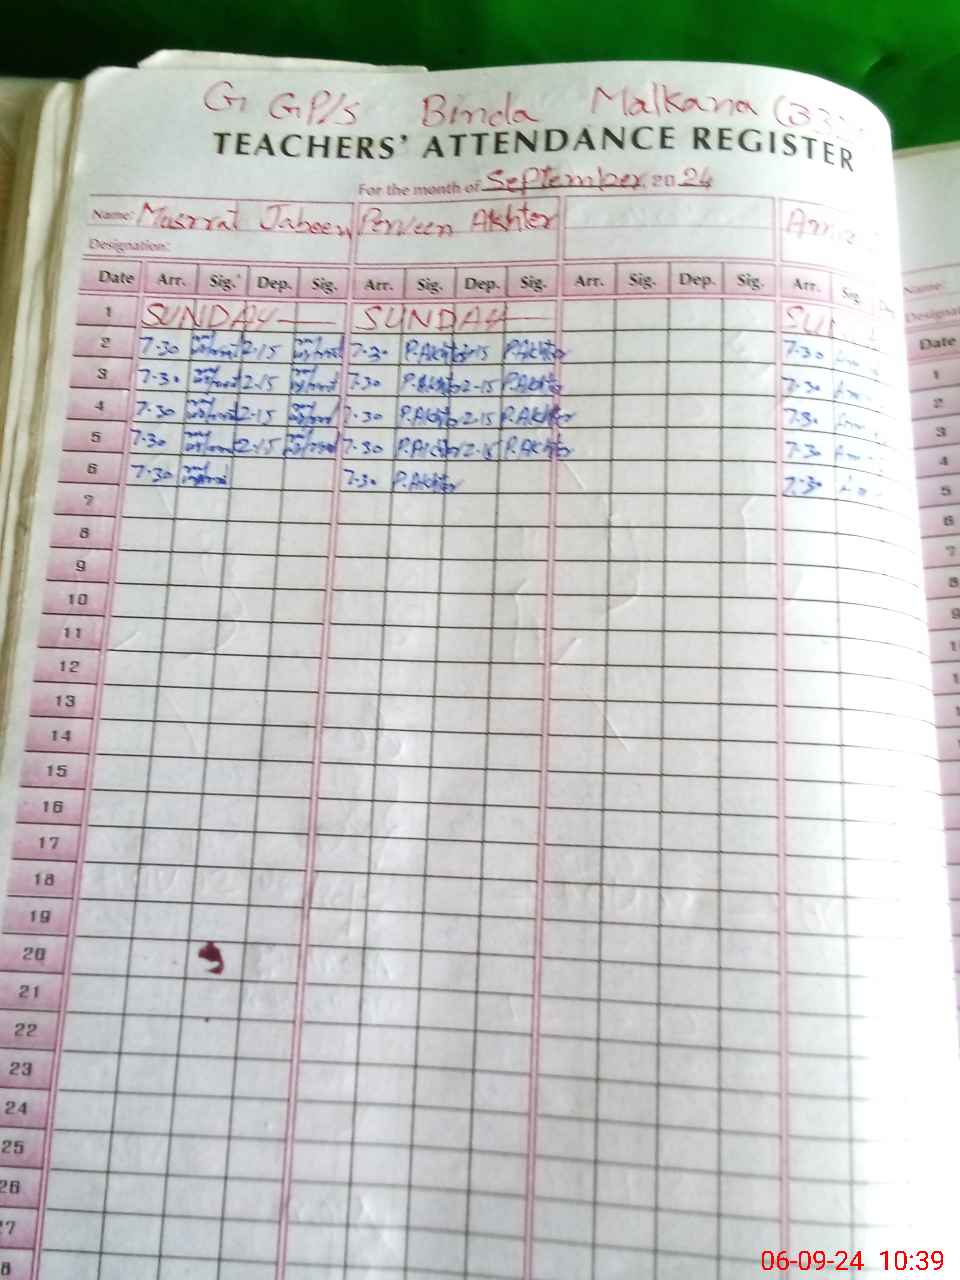 G GP/S Binda Malkana (33
TEACHERS' ATTENDANCE REGISTER
For the month of September 2024
Name: Musrrat Jabeen Perveen Akhter
Designation:
Date Arr. Sig. Dep. Sig. Arr. Sig. Dep. Sig. Arr. Sig. Dep. Sig. Arr. Sig.
1 SUNDAY SUNDAY SU
2 7-30 2-15 7-30 P.Akhter 2-15 P.Akhter 7-30
3 7-30 2-15 7-30 P.Akhter 2-15 P.Akhter 7-30
4 7-30 2-15 7-30 P.Akhter 2-15 P.Akhter 7-30
5 7-30 2-15 7-30 P.Akhter 2-15 P.Akhter 7-30
6 7-30 7-30 P.Akhter 7-30
7
8
9
10
11
12
13
14
15
16
17
18
19
20
21
22
23
24
25
26
Name:
Date
1
2
3
4
5
6
7
8
9
06-09-24 10:39